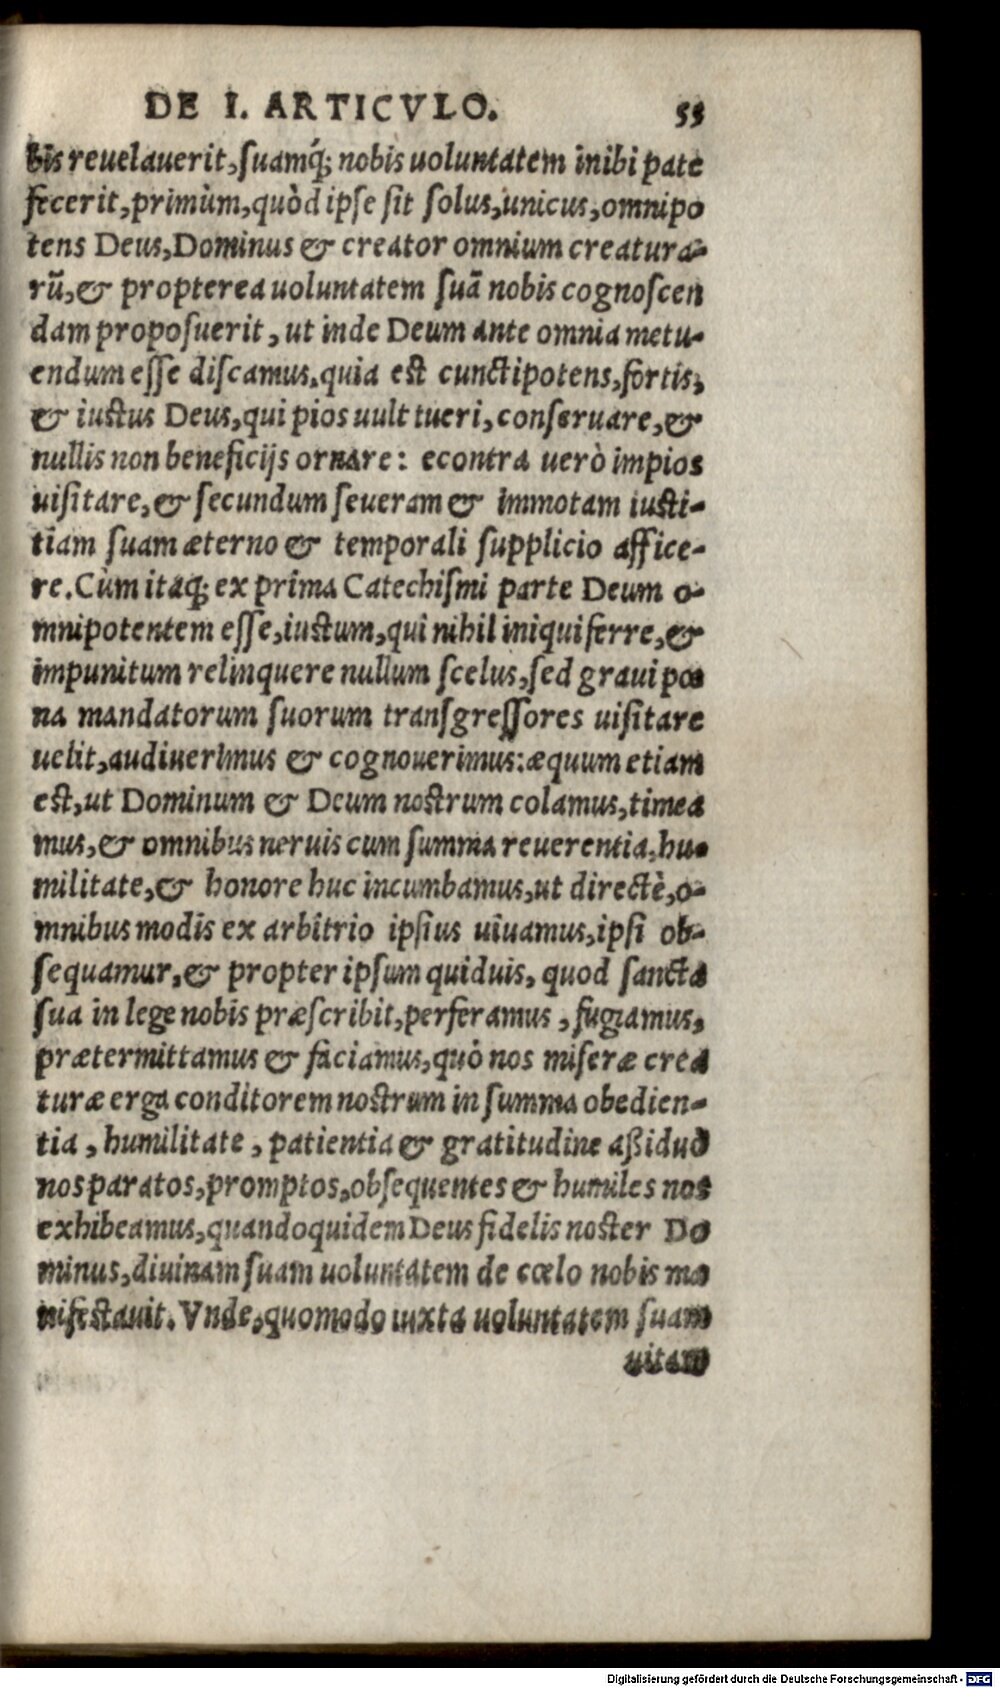 DE I. ARTICVLO. 55
bis reuelauerit, suamq́; nobis uoluntatem inibi pate
fecerit, primùm, quòd ipse sit solus, unicus, omnipo
tens Deus, Dominus & creator omnium creatura-
rũ, & propterea uoluntatem suã nobis cognoscen
dam proposuerit, ut inde Deum ante omnia metu-
endum esse discamus. quia est cunctipotens, fortis,
& iustus Deus, qui pios uult tueri, conseruare, &
nullis non beneficijs ornare: econtra uerò impios
uisitare, & secundum seueram & immotam iusti-
tiam suam æterno & temporali supplicio affice-
re. Cùm itaq; ex prima Catechismi parte Deum o-
mnipotentem esse, iustum, qui nihil iniqui ferre, &
impunitum relinquere nullum scelus, sed graui pœ
na mandatorum suorum transgressores uisitare
uelit, audiuerimus & cognouerimus: æquum etiam
est, ut Dominum & Deum nostrum colamus, timea
mus, & omnibus neruis cum summa reuerentia, hu-
militate, & honore huc incumbamus, ut directè, o-
mnibus modis ex arbitrio ipsius uiuamus, ipsi ob-
sequamur, & propter ipsum quiduis, quod sancta
sua in lege nobis præscribit, perferamus, fugiamus,
prætermittamus & faciamus, quò nos miseræ crea
turæ erga conditorem nostrum in summa obedien-
tia, humilitate, patientia & gratitudine aßiduò
nos paratos, promptos, obsequentes & humiles nos
exhibeamus, quandoquidem Deus fidelis noster Do
minus, diuinam suam uoluntatem de cœlo nobis ma
nifestauit. Vnde, quomodo iuxta uoluntatem suam
uitam
Digitalisierung gefördert durch die Deutsche Forschungsgemeinschaft - DFG